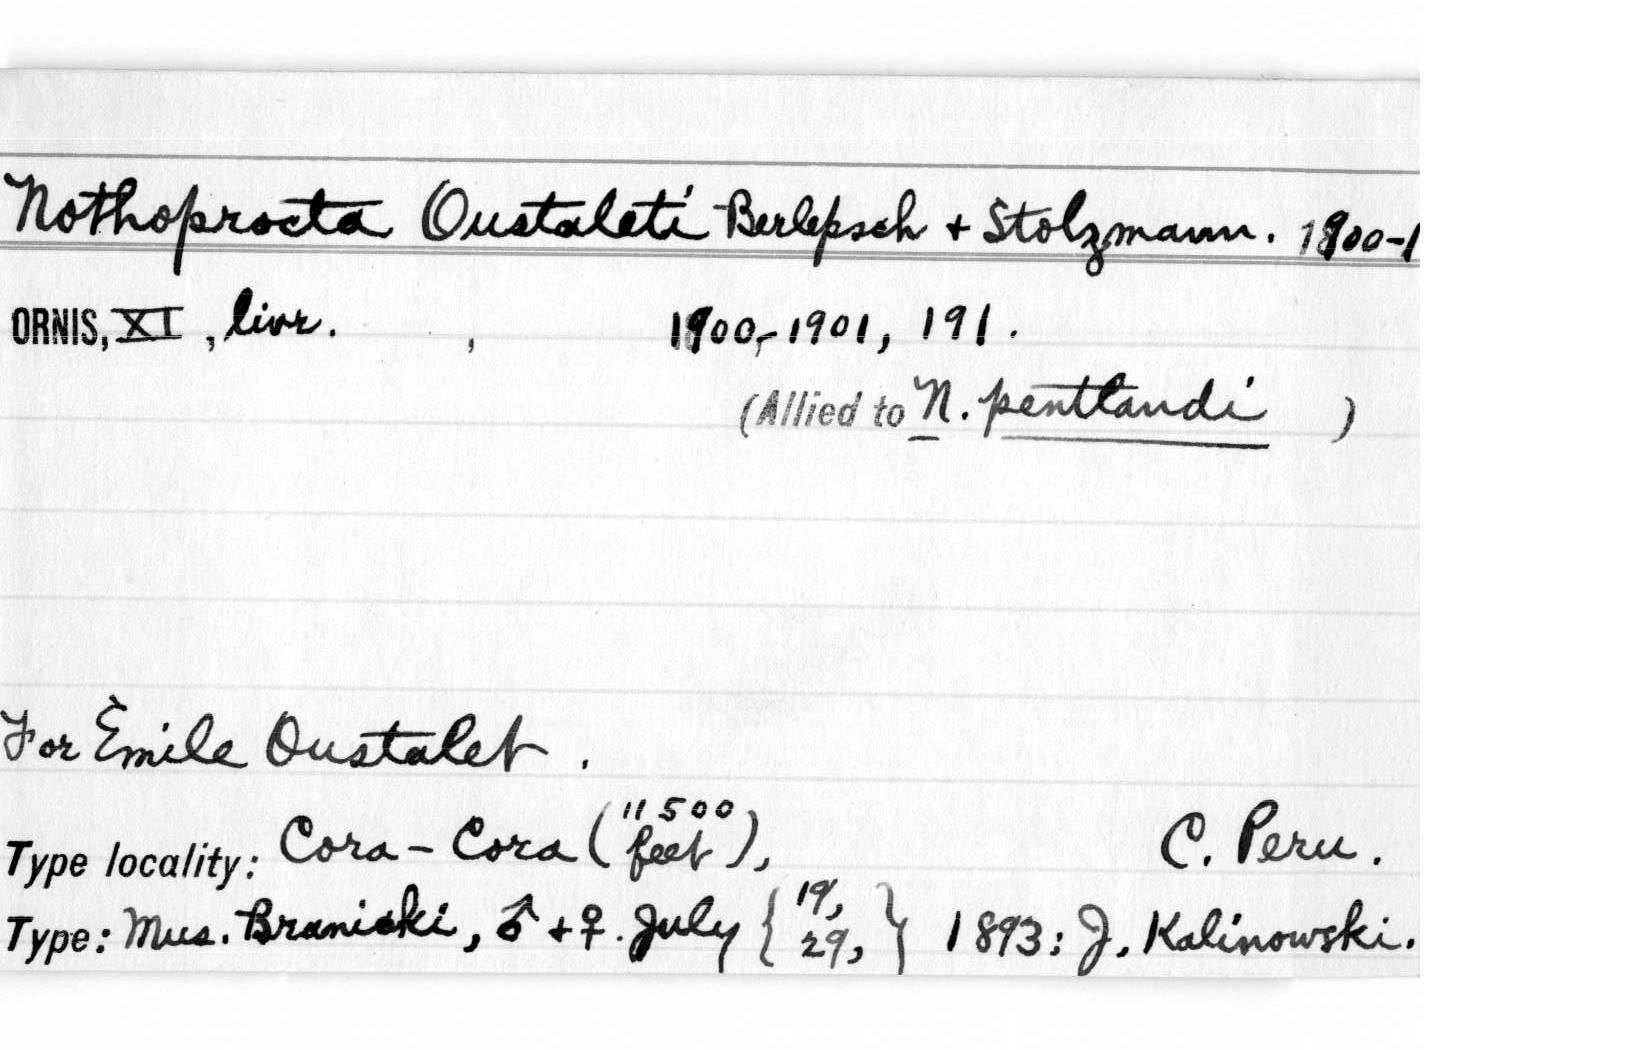 Nothoprocta Oustaleti Berlepsch + Stolzmann. 1900-1
ORNIS, XI, livr. , 1900-1901, 191.
(Allied to N. pentlandi )
For Émile Oustalet.
Type locality: Cora-Cora (11500 feet), C. Peru.
Type: Mus. Branicki, ♂ + ♀. July {19, 29,} 1893: J. Kalinowski.